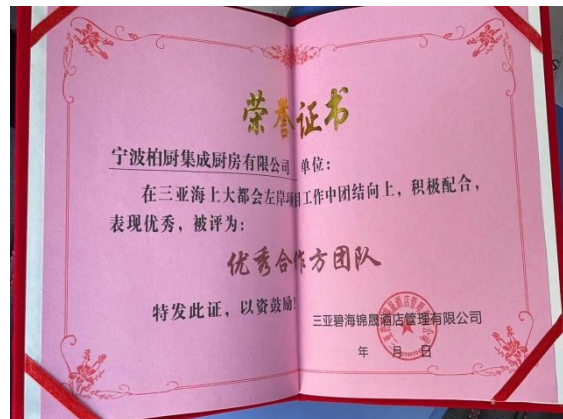 荣誉证书
宁波柏厨集成厨房有限公司 单位：
在三亚海上大都会左岸项目工作中团结向上，积极配合，
表现优秀，被评为：
优秀合作方团队
特发此证，以资鼓励！
三亚碧海锦晟酒店管理有限公司
年 月 日